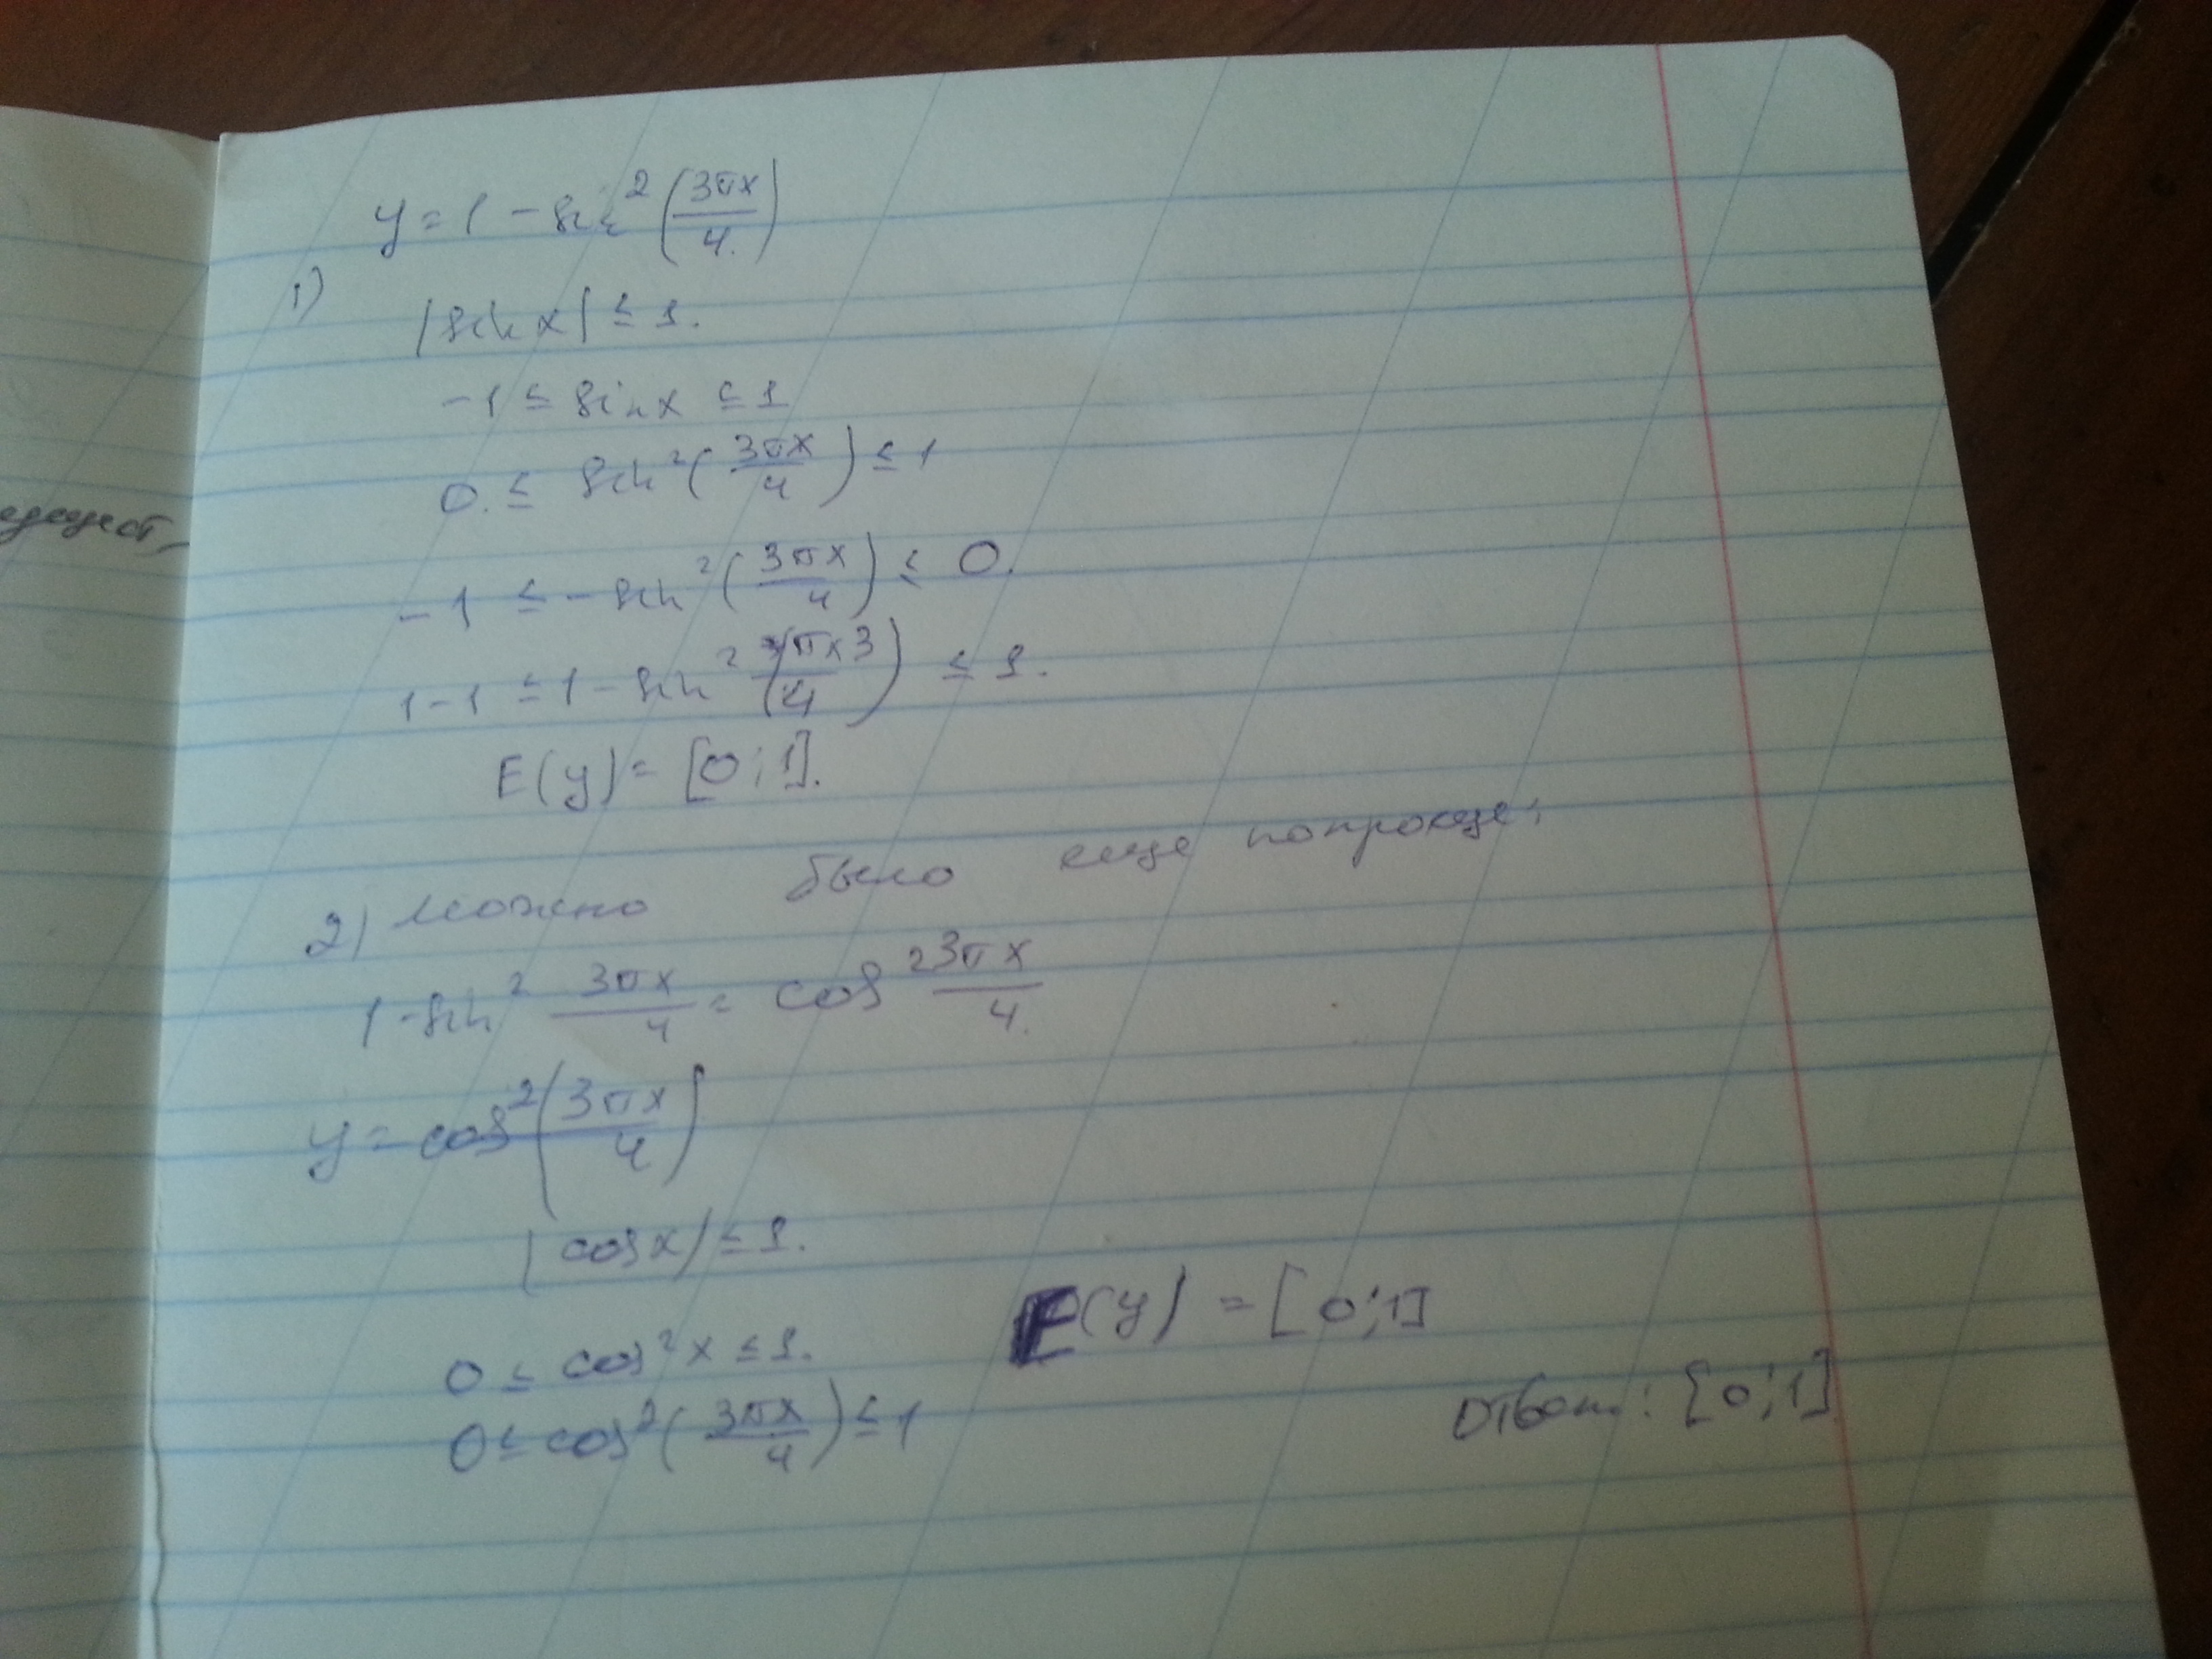 y = 1 - sin²(3πx/4)
1)
|sin x| ≤ 1.
-1 ≤ sin x ≤ 1
0 ≤ sin²(3πx/4) ≤ 1
-1 ≤ -sin²(3πx/4) ≤ 0.
1-1 ≤ 1 - sin²(πx3/4) ≤ 1.
E(y) = [0; 1].
2) можно было еще попроще:
1 - sin² 3πx/4 = cos² 3πx/4.
y = cos²(3πx/4)
|cos x| ≤ 1.
0 ≤ cos² x ≤ 1.
E(y) = [0; 1]
0 ≤ cos²(3πx/4) ≤ 1
Ответ: [0; 1]